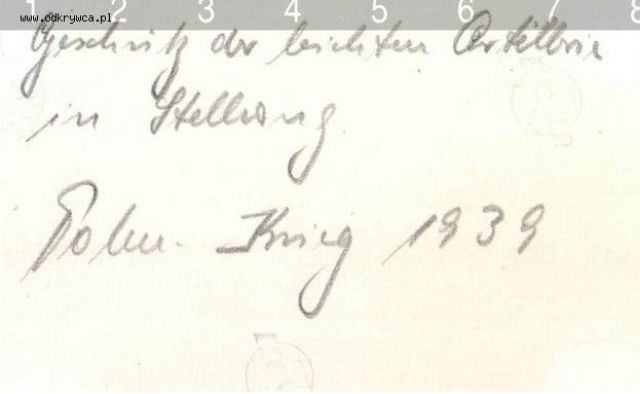 1 2 3 4 5 6 7 8
www.odkrywca.pl
Geschütz der leichten Artillerie
in Stellung
Polen-Krieg 1939